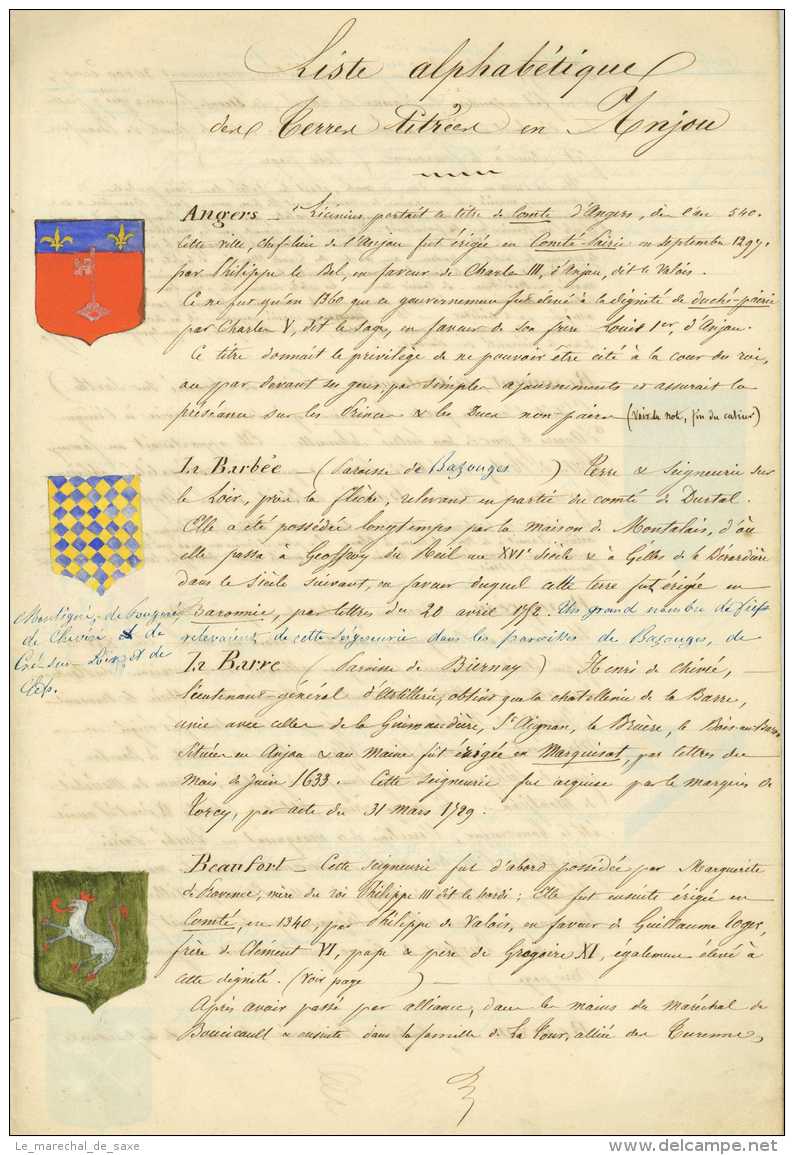 Liste alphabétique
des Terres titrées en Anjou
Angers – Licinius portait le titre de Comte d'Angers, dès l'an 540.
Cette ville, chef-lieu de l'Anjou fut érigée en Comté-Pairie en septembre 1297.
par Philippe le Bel, en faveur de Charles III, d'Anjou, dit le Valois.
Ce ne fut qu'en 1360 que ce gouvernement fut élevé à la dignité de duché-pairie
par Charles V, dit le Sage, en faveur de son frère Louis 1er, d'Anjou.
Ce titre donnait le privilége de ne pouvoir être cité à la cour du roi,
ou par devant ses gens, par simples ajournements et assurait la
préséance sur les Princes & les Ducs non-pairs (voir la not, fin du cahier)
La Barbée – (Paroisse de Bazouges) Terre & Seigneurie sur
le Loir, près la flèche, relevant en partie du comté de Durtal.
Elle a été possédée longtemps par la maison de Montalais, d'où
elle passa à Geoffroy du Reil au XVIe siècle & à Gilles de la
dans le siècle suivant, en faveur duquel cette terre fut érigée en
Baronnie, par lettres du 20 avril Un grand nombre de fiefs
relevaient de cette seigneurie dans les paroisses de Bazouges, de
Montigné, de Fougeré,
de Cheviré & de
Cré-sur-Loir, et de
Clefs.
La Barre (Paroisse de Biernay) Henri de Chivré,
lieutenant-général d'Artillerie, obtint que la chatellenie de la Barre,
unie avec celles de la Guimaudière, St Aignan, la Bruère, le
Située en Anjou & au Maine fut érigée en Marquisat, par lettres du
mois de Juin 1633. – Cette seigneurie fut acquise par le marquis de
Torcy, par acte du 31 mars 1729.
Beaufort – Cette seigneurie fut d'abord possédée par Marguerite
de Provence, mère du roi Philippe III dit le hardi; Elle fut ensuite érigée en
Comté, en 1340, par Philippe de Valois, en faveur de Guillaume Roger,
frère de Clément VI, pape & père de Grégoire XI, également élevé à
cette dignité. (Voir page ) –
Après avoir passé par alliance, dans les mains du Maréchal de
Boucicault & ensuite dans la famille de La Tour, alliée des Turenne,
Le_marechal_de_saxe
delcampe.net